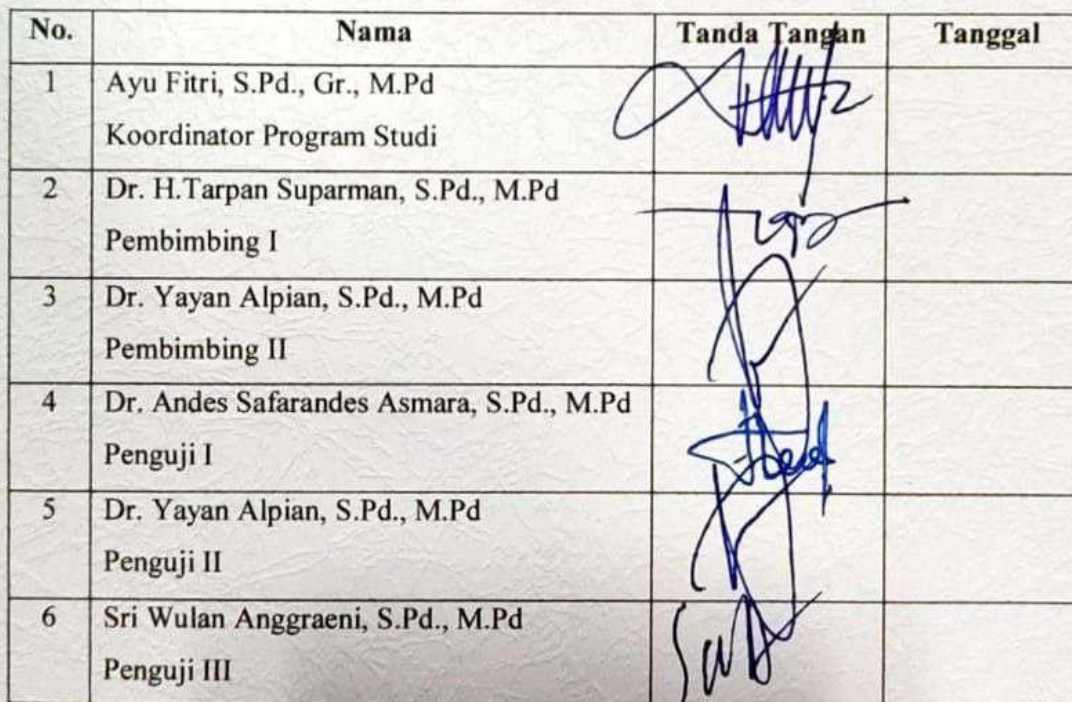 No. Nama Tanda Tangan Tanggal
1 Ayu Fitri, S.Pd., Gr., M.Pd
Koordinator Program Studi
2 Dr. H.Tarpan Suparman, S.Pd., M.Pd
Pembimbing I
3 Dr. Yayan Alpian, S.Pd., M.Pd
Pembimbing II
4 Dr. Andes Safarandes Asmara, S.Pd., M.Pd
Penguji I
5 Dr. Yayan Alpian, S.Pd., M.Pd
Penguji II
6 Sri Wulan Anggraeni, S.Pd., M.Pd
Penguji III